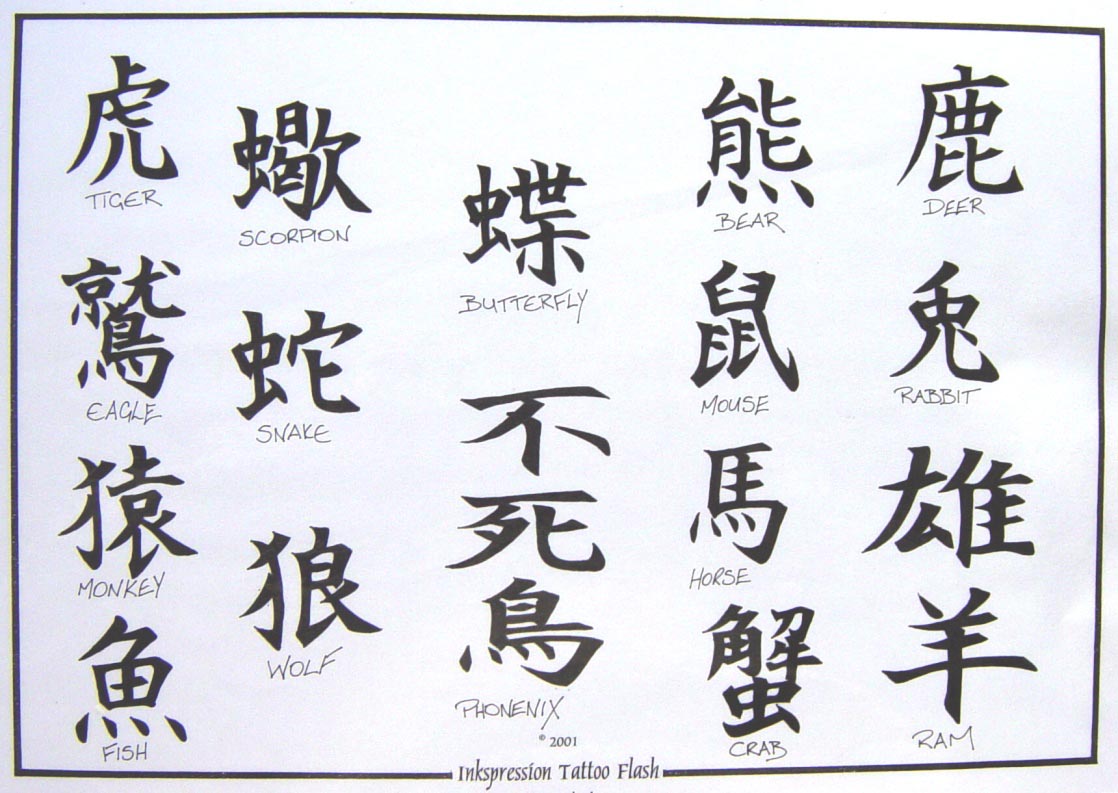 虎
TIGER
鷲
EAGLE
猿
MONKEY
魚
FISH
蠍
SCORPION
蛇
SNAKE
狼
WOLF
蝶
BUTTERFLY
不
死
鳥
PHONENIX
© 2001
熊
BEAR
鼠
MOUSE
馬
HORSE
蟹
CRAB
鹿
DEER
兎
RABBIT
雄
羊
RAM
Inkspression Tattoo Flash